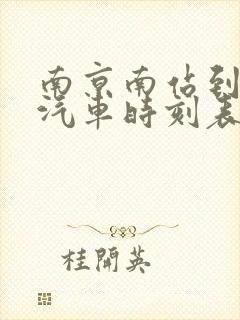 南京南佔到
汽車時刻表
桂開英